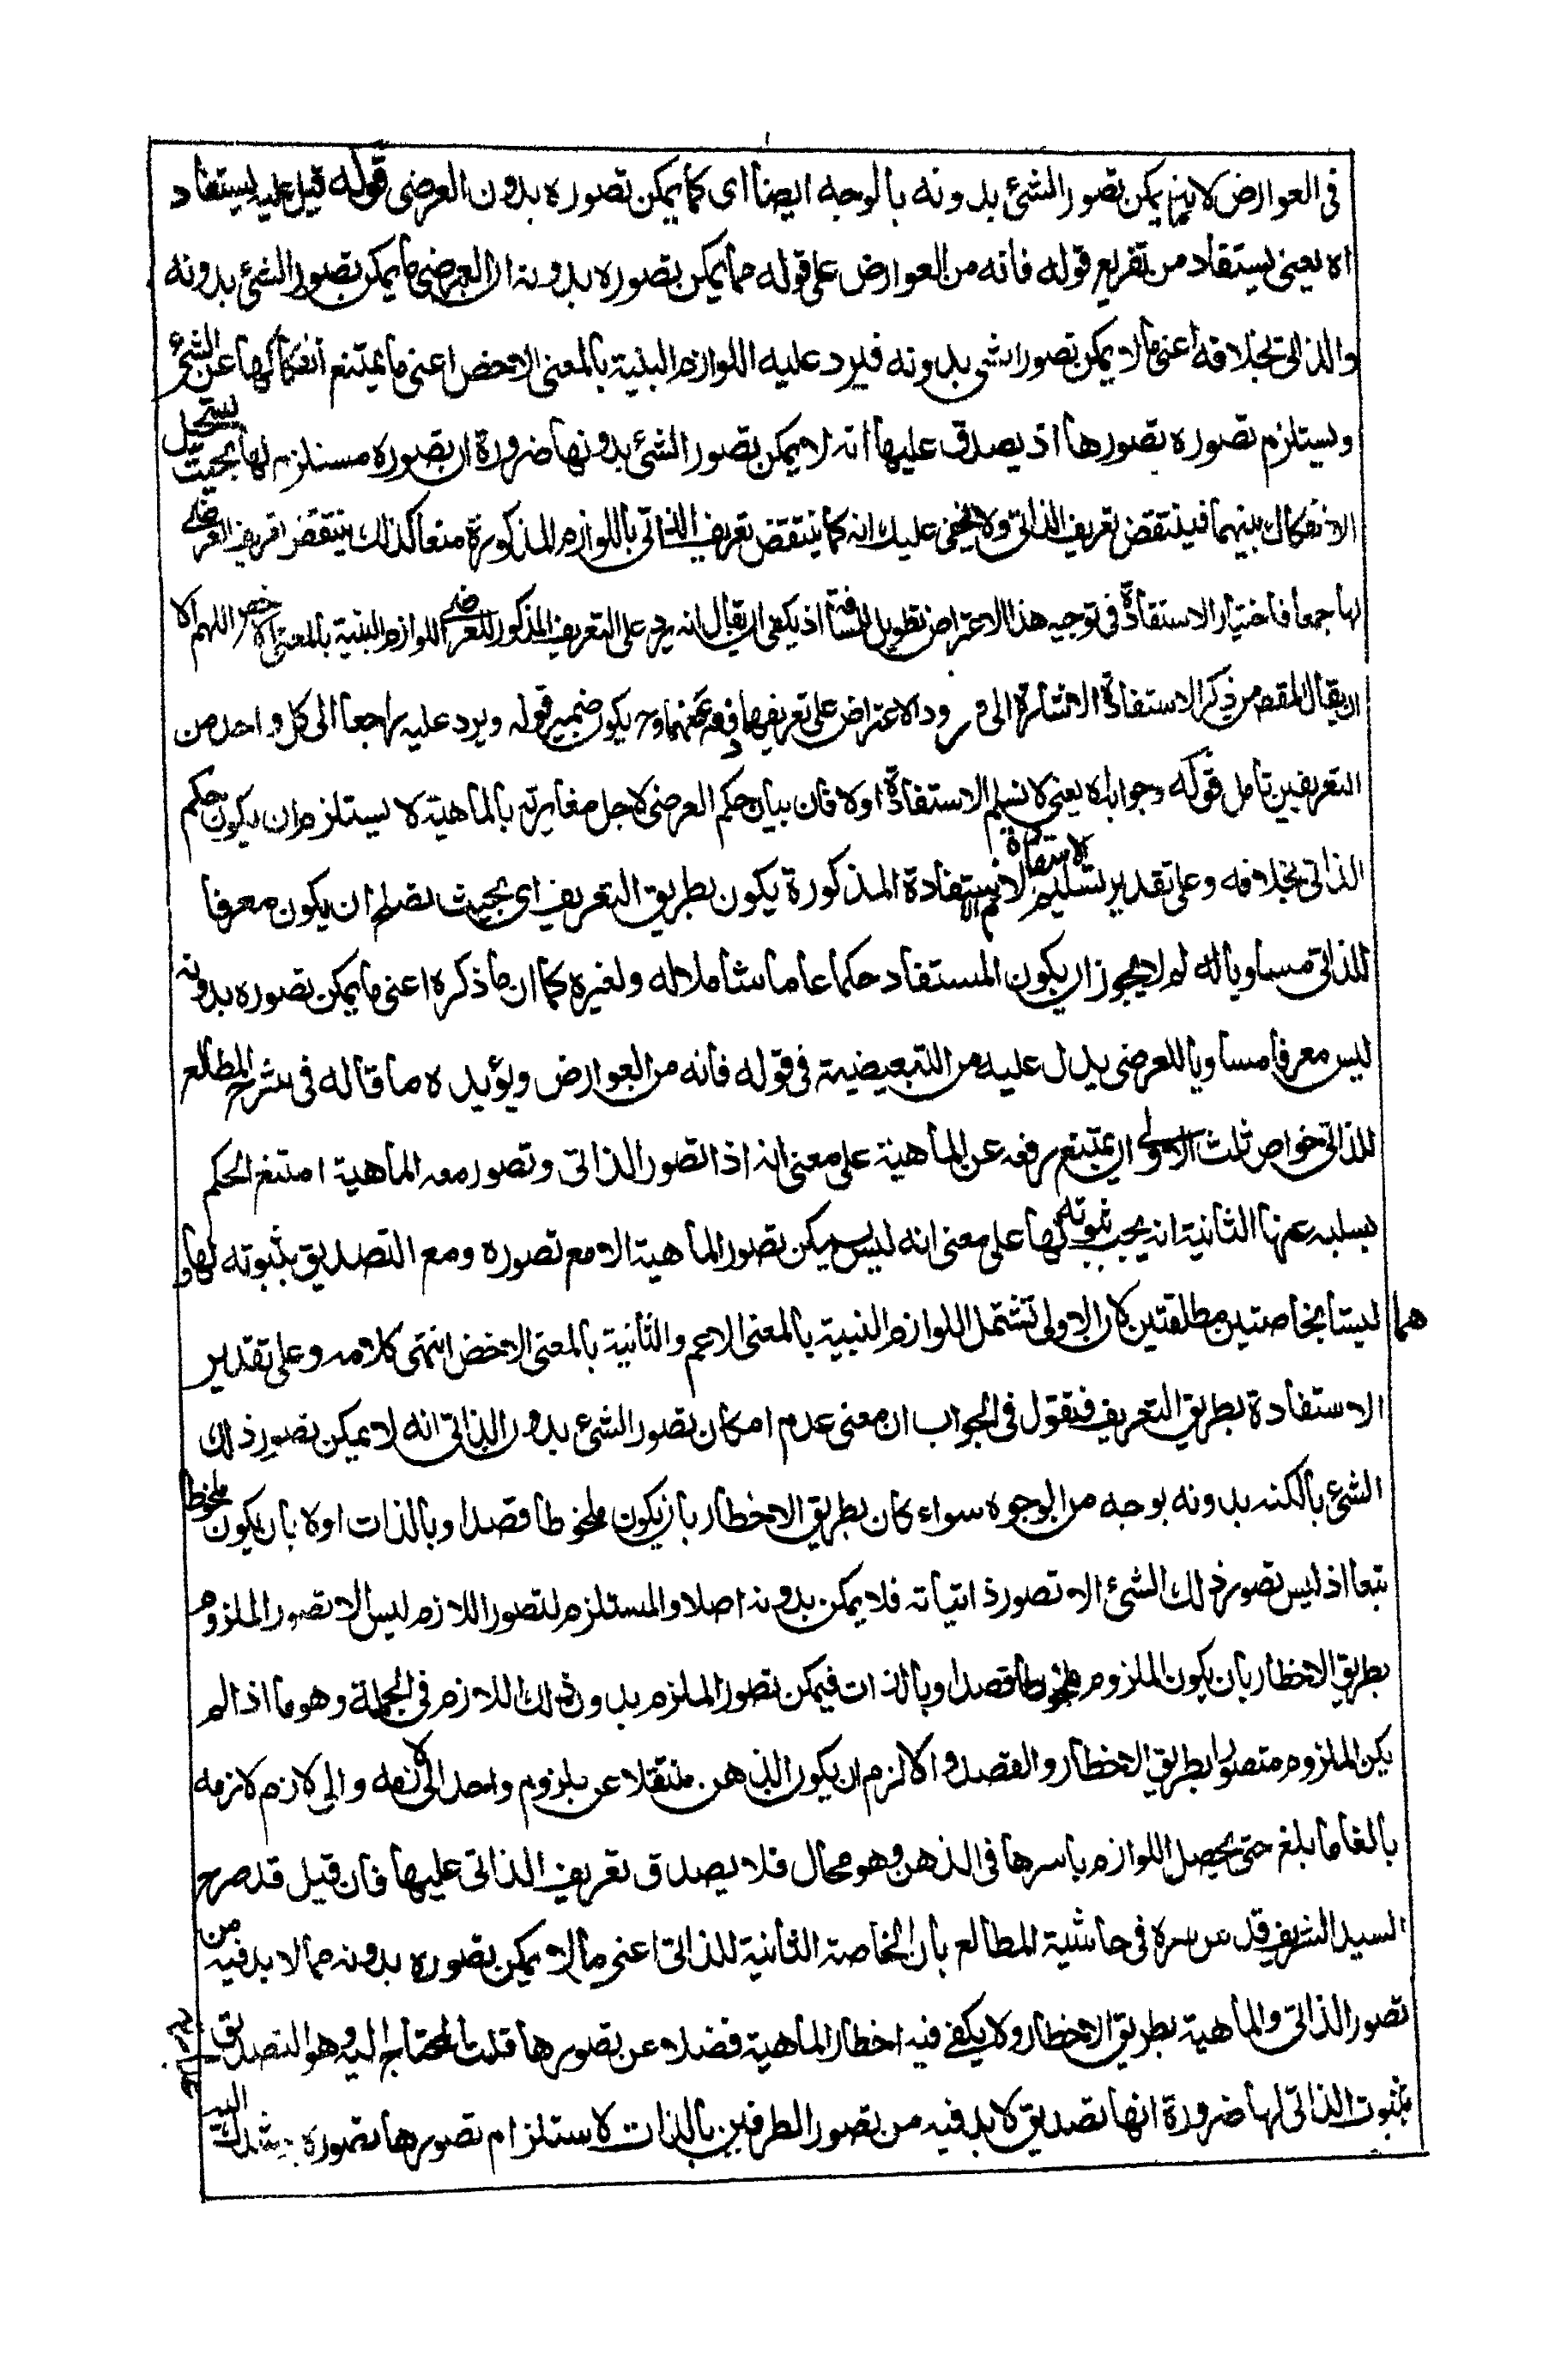 في العوارض لانه يمكن تصور الشئ بدونه بالوجه ايضا اى كما يمكن تصوره بدون العرضى قوله قيل عليه يستفاد
اه يعنى يستفاد من تفريع قوله فانه من العوارض على قوله مما يمكن تصوره بدونه ان العرضى ما يمكن تصور الشئ بدونه
والذاتى بخلافه اعنى ما لا يمكن تصور الشى بدونه فيرد عليه اللوازم البينة بالمعنى الاخص اعنى ما يمتنع انفكاكها عن الشئ
ويستلزم تصوره تصورها اذ يصدق عليها انه لا يمكن تصور الشئ بدونها ضرورة ان تصوره مستلزم لها بحيث يستحيل
الانفكاك بينهما فينتقض تعريف الذاتى ولا يخفى عليك انه كما ينتقض تعريف الذاتى باللوازم المذكورة منعا كذلك ينتقض تعريف العرضى
بها جمعا فاختيار الاستفادة فى توجيه هذا الاعتراض تطويل المسافة اذ يكفى ان يقال انه يرد على التعريف المذكور للعرضى اللوازم البينة بالمعنى الاخص اللهم الا
ان يقال المقصد من ذكر الاستفادة الاشارة الى ورود الاعتراض على تعريفهما ودفعه عنهما وح يكون ضمير قوله ويرد عليه راجعا الى كل واحد من
التعريفين تامل قوله وجوابه اه يعنى لا نسلم الاستفادة اولا فان بيان حكم العرضى لاجل مغايرته بالماهية لا يستلزم ان يكون حكم
الذاتى بخلافه وعلى تقدير تسليم الاستفادة لانم الاستفادة المذكورة يكون بطريق التعريف اى بحيث يصلح ان يكون معرفا
للذاتى مساويا له لم لا يجوز ان يكون المستفاد حكما عاما شاملا له ولغيره كما ان ما ذكره اعنى ما يمكن تصوره بدونه
ليس معرفا مساويا للعرضى يدل عليه من التبعيضية فى قوله فانه من العوارض ويؤيده ما قاله فى شرح المطالع
للذاتى خواص ثلث الاولى ان يمتنع رفعه عن الماهية على معنى انه اذا تصور الذاتى وتصور معه الماهية امتنع الحكم
بسلبه عنها الثانية انه يجب ثبوته لها على معنى انه ليس يمكن تصور الماهية الا مع تصوره ومع التصديق بثبوته لها و
هما ليستا بخاصتين مطلقتين لان الاولى تشتمل اللوازم البينة بالمعنى الاعم والثانية بالمعنى الاخص انتهى كلامه وعلى تقدير
الاستفادة بطريق التعريف فنقول فى الجواب ان معنى عدم امكان تصور الشئ بدون الذاتى انه لا يمكن تصور ذلك
الشئ بالكنه بدونه بوجه من الوجوه سواء كان بطريق الاخطار بان يكون ملحوظا قصدا وبالذات اولا بان يكون ملحوظا
تبعا اذ ليس تصور ذلك الشئ الا تصور ذاتياته فلا يمكن بدونه اصلا والمستلزم لتصور اللازم ليس الا تصور الملزوم
بطريق الاخطار بان يكون الملزوم ملحوظا قصدا وبالذات فيمكن تصور الملزوم بدون ذلك اللازم فى الجملة وهو ما اذا لم
يكن الملزوم متصورا بطريق الاخطار والقصد والا لزم ان يكون الذهن منتقلا عن ملزوم واحد الى لازمه والى لازم لازمه
بالغا ما بلغ حتى يحصل اللوازم باسرها فى الذهن وهو محال فلا يصدق تعريف الذاتى عليها فان قيل قد صرح
السيد الشريف قدس سره فى حاشية المطالع بان الخاصة الثانية للذاتى اعنى ما لا يمكن تصوره بدونه مما لا بد فيه من
تصور الذاتى والماهية بطريق الاخطار ولا يكفى فيه اخطار الماهية فضلا عن تصورها قلت المحتاج اليه هو التصديق
بثبوت الذاتى لها ضرورة انها تصديق لا بد فيه من تصور الطرفين بالذات لا ستلزام تصورها تصوره